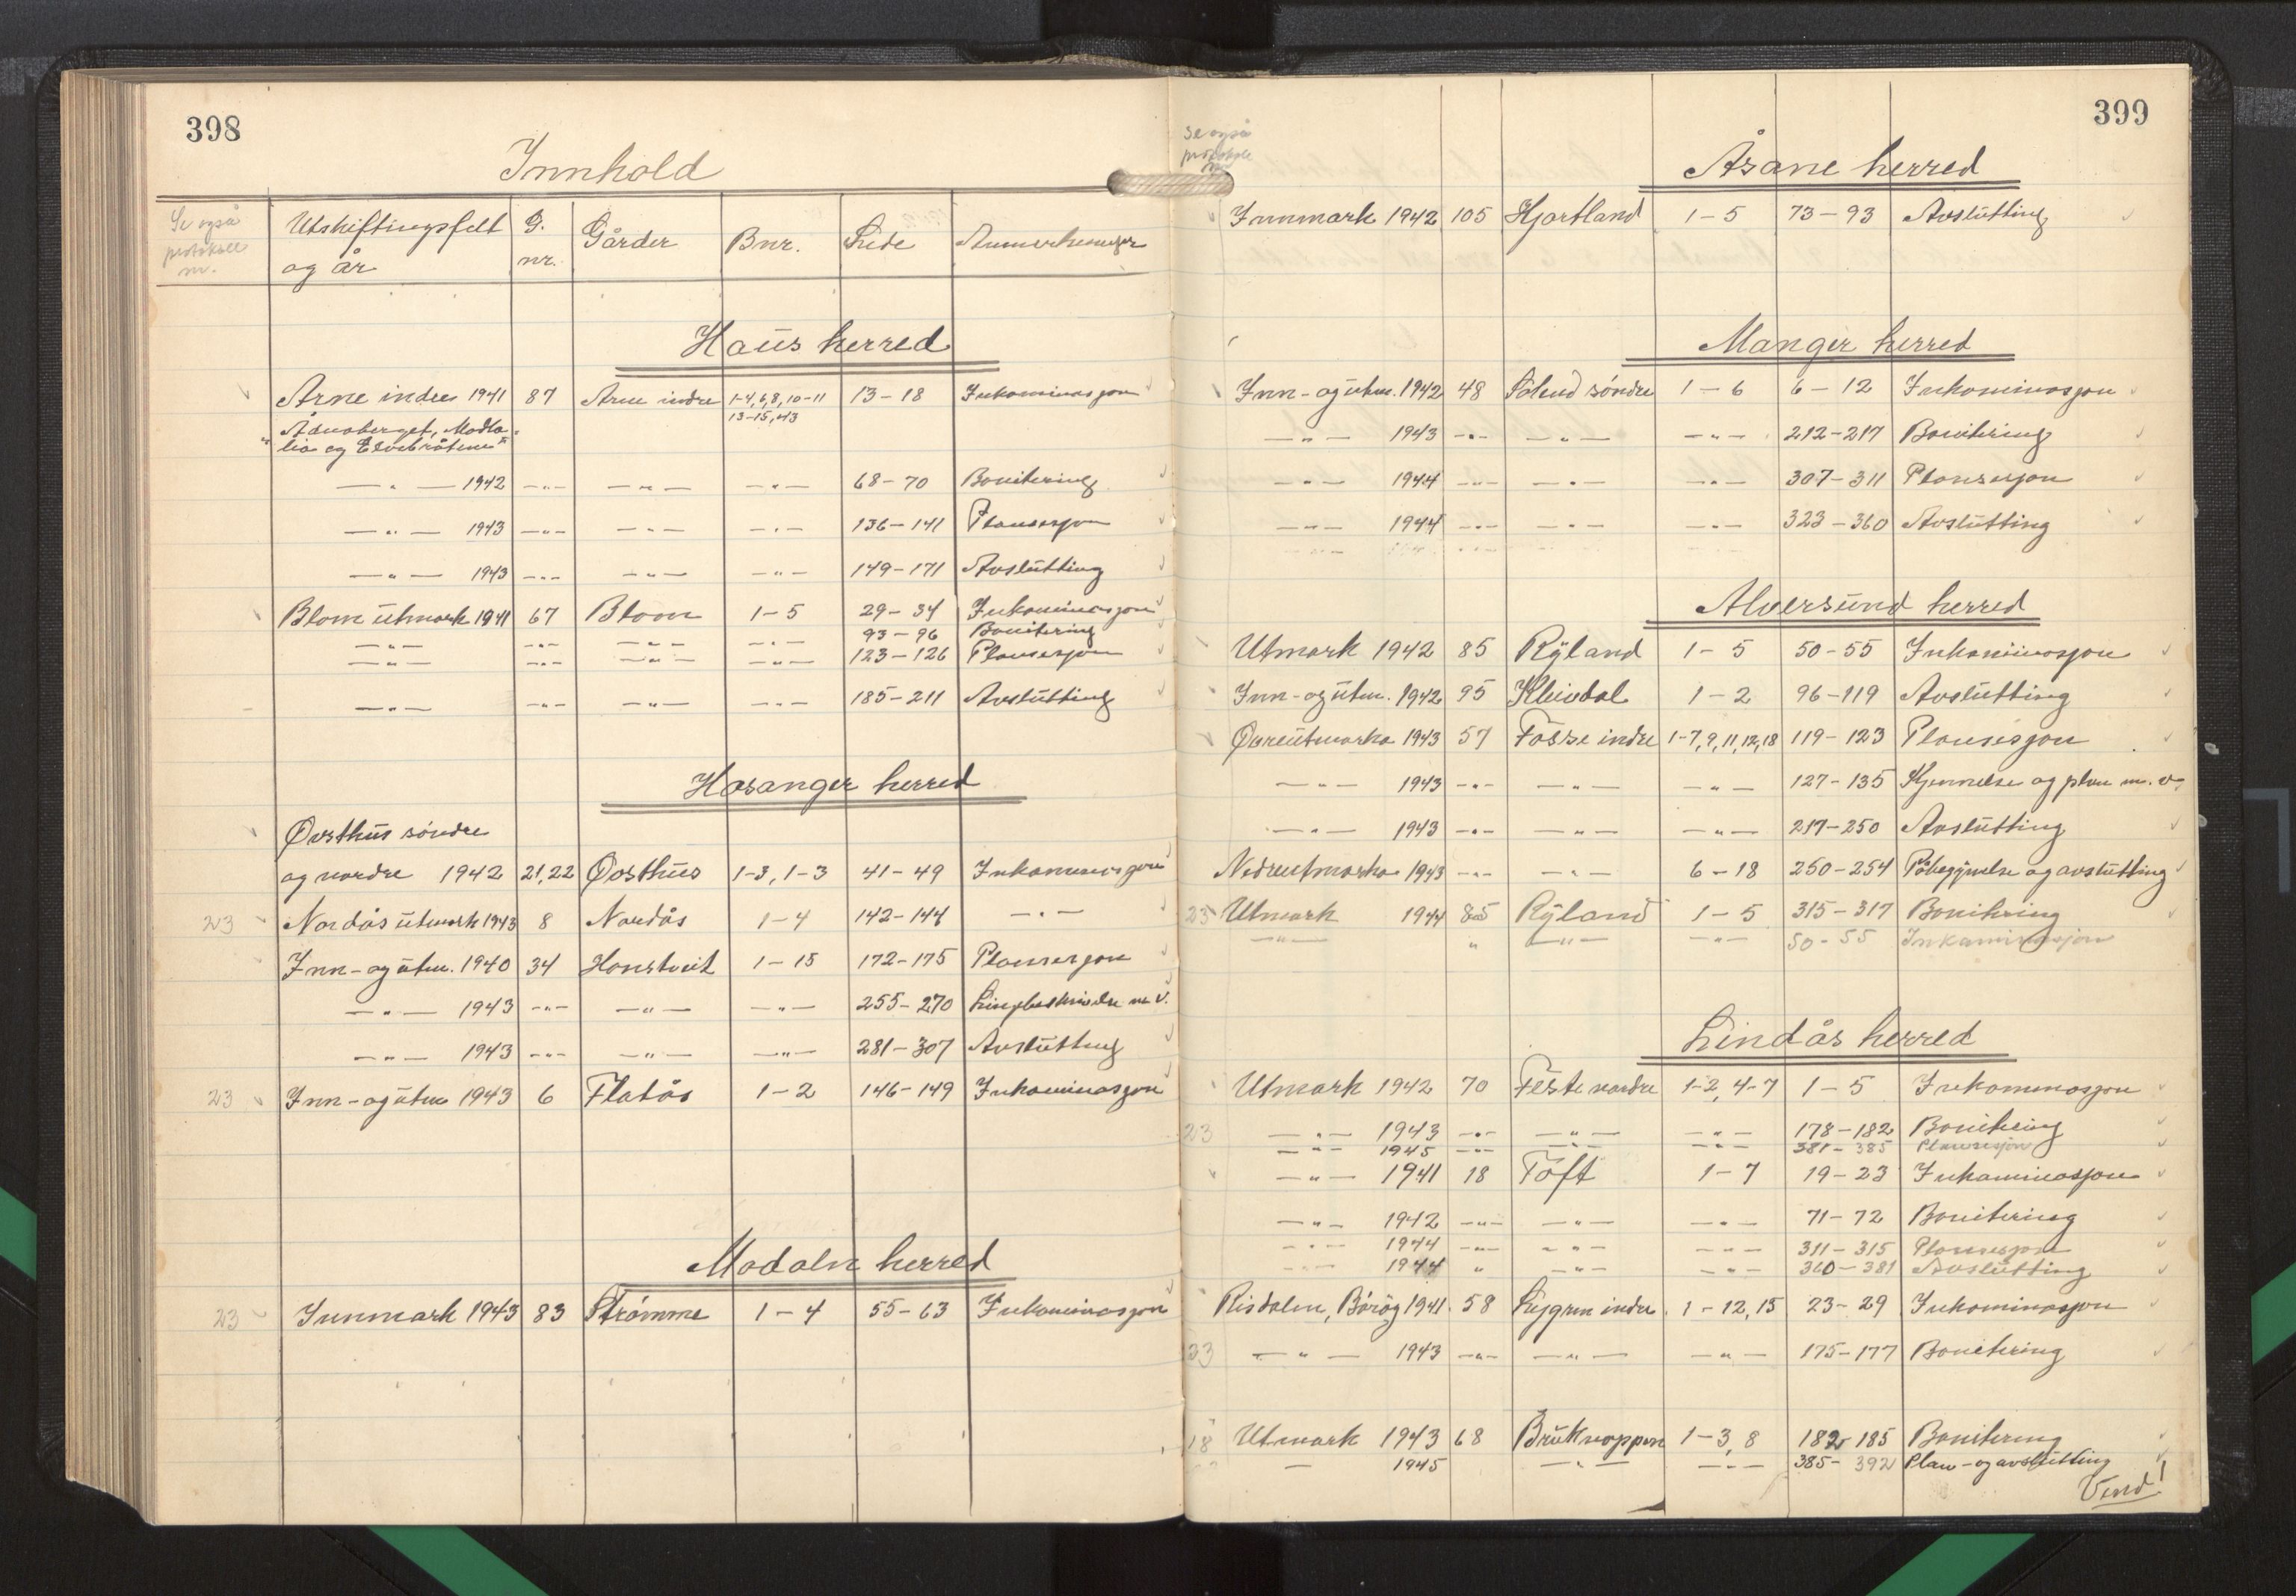 398
Innhold
Se også protokoll nr. Utskiftingsfelt og år G. nr. Gårder Bnr. Side Anmerkninger
Haus herred
Arne indre 1941 87 Arne indre 1-4,6,8,10-11 13-15,43 13-18 Inkaminasjon
lia og
— " — 1942 — " — — " — — " — 68-70 Bonitering
— " — 1943 — " — — " — — " — 136-141 Plansesjon
— " — 1943 — " — — " — — " — 149-171 Avslutting
Blom utmark 1941 67 Blom 1-5 29-34 Inkaminasjon
— " — — " — — " — — " — 93-96 Bonitering
— " — — " — — " — — " — 123-126 Plansesjon
— " — — " — — " — — " — 185-211 Avslutting
Hosanger herred
Øvsthus søndre
og nordre 1942 21,22 Øvsthus 1-3, 1-3 41-49 Inkaminasjon
23 Nordås utmark 1943 8 Nordås 1-4 142-144 — " —
Inn- og utm. 1940 34 Honstveit 1-15 172-175 Plansesjon
— " — 1943 — " — — " — — " — 255-270 m. v.
— " — 1943 — " — — " — — " — 281-307 Avslutting
23 Inn- og utm 1943 6 Flatås 1-2 146-149 Inkaminasjon
Modalen herred
23 Innmark 1943 83 Strømme 1-4 55-63 Inkaminasjon
399
Se også protokoll nr
Åsane herred
Innmark 1942 105 Hjortland 1-5 73-93 Avslutting
Manger herred
Inn- og utm. 1942 48 søndre 1-6 6-12 Inkaminasjon
— " — 1943 — " — — " — — " — 212-217 Bonitering
— " — 1944 — " — — " — — " — 307-311 Plansesjon
— " — 1944 — " — — " — — " — 323-360 Avslutting
Alversund herred
Utmark 1942 85 Ryland 1-5 50-55 Inkaminasjon
Inn- og utm. 1942 95 Kleivdal 1-2 96-119 Avslutting
Øvreutmarka 1943 57 Fosse indre 1-7,9,11,12,18 119-123 Plansesjon
— " — 1943 — " — — " — — " — 127-135 Kjennelse og plan m. v.
— " — 1943 — " — — " — — " — 217-250 Avslutting
Nedreutmarka 1943 — " — — " — 6-18 250-254 Påbegynnelse og avslutting
23 Utmark 1944 85 Ryland 1-5 315-317 Bonitering
— " — " — " — — " — 50-55 Inkaminasjon
Lindås herred
Utmark 1942 70 Feste nordre 1-2, 4-7 1-5 Inkaminasjon
23 — " — 1943 — " — — " — — " — 178-182 Bonitering
— " — 1945 — " — — " — — " — 381-385 Plansesjon
— " — 1941 18 Toft 1-7 19-23 Inkaminasjon
— " — 1942 — " — — " — — " — 71-72 Bonitering
— " — 1944 — " — — " — — " — 311-315 Plansesjon
— " — 1944 " — " — — " — 360-381 Avslutting
Risdalen, 1941 58 Lygren indre 1-12,15 23-29 Inkaminasjon
33 — " — 1943 — " — — " — — " — 175-177 Bonitering
18 Utmark 1943 68 Bruknappen 1-3, 8 182-185 Bonitering
— 1945 — " — — " — 385-392 Plan- og avslutting
Vend!